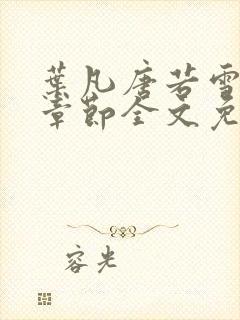 葉凡唐若雪
章節全文免
容光